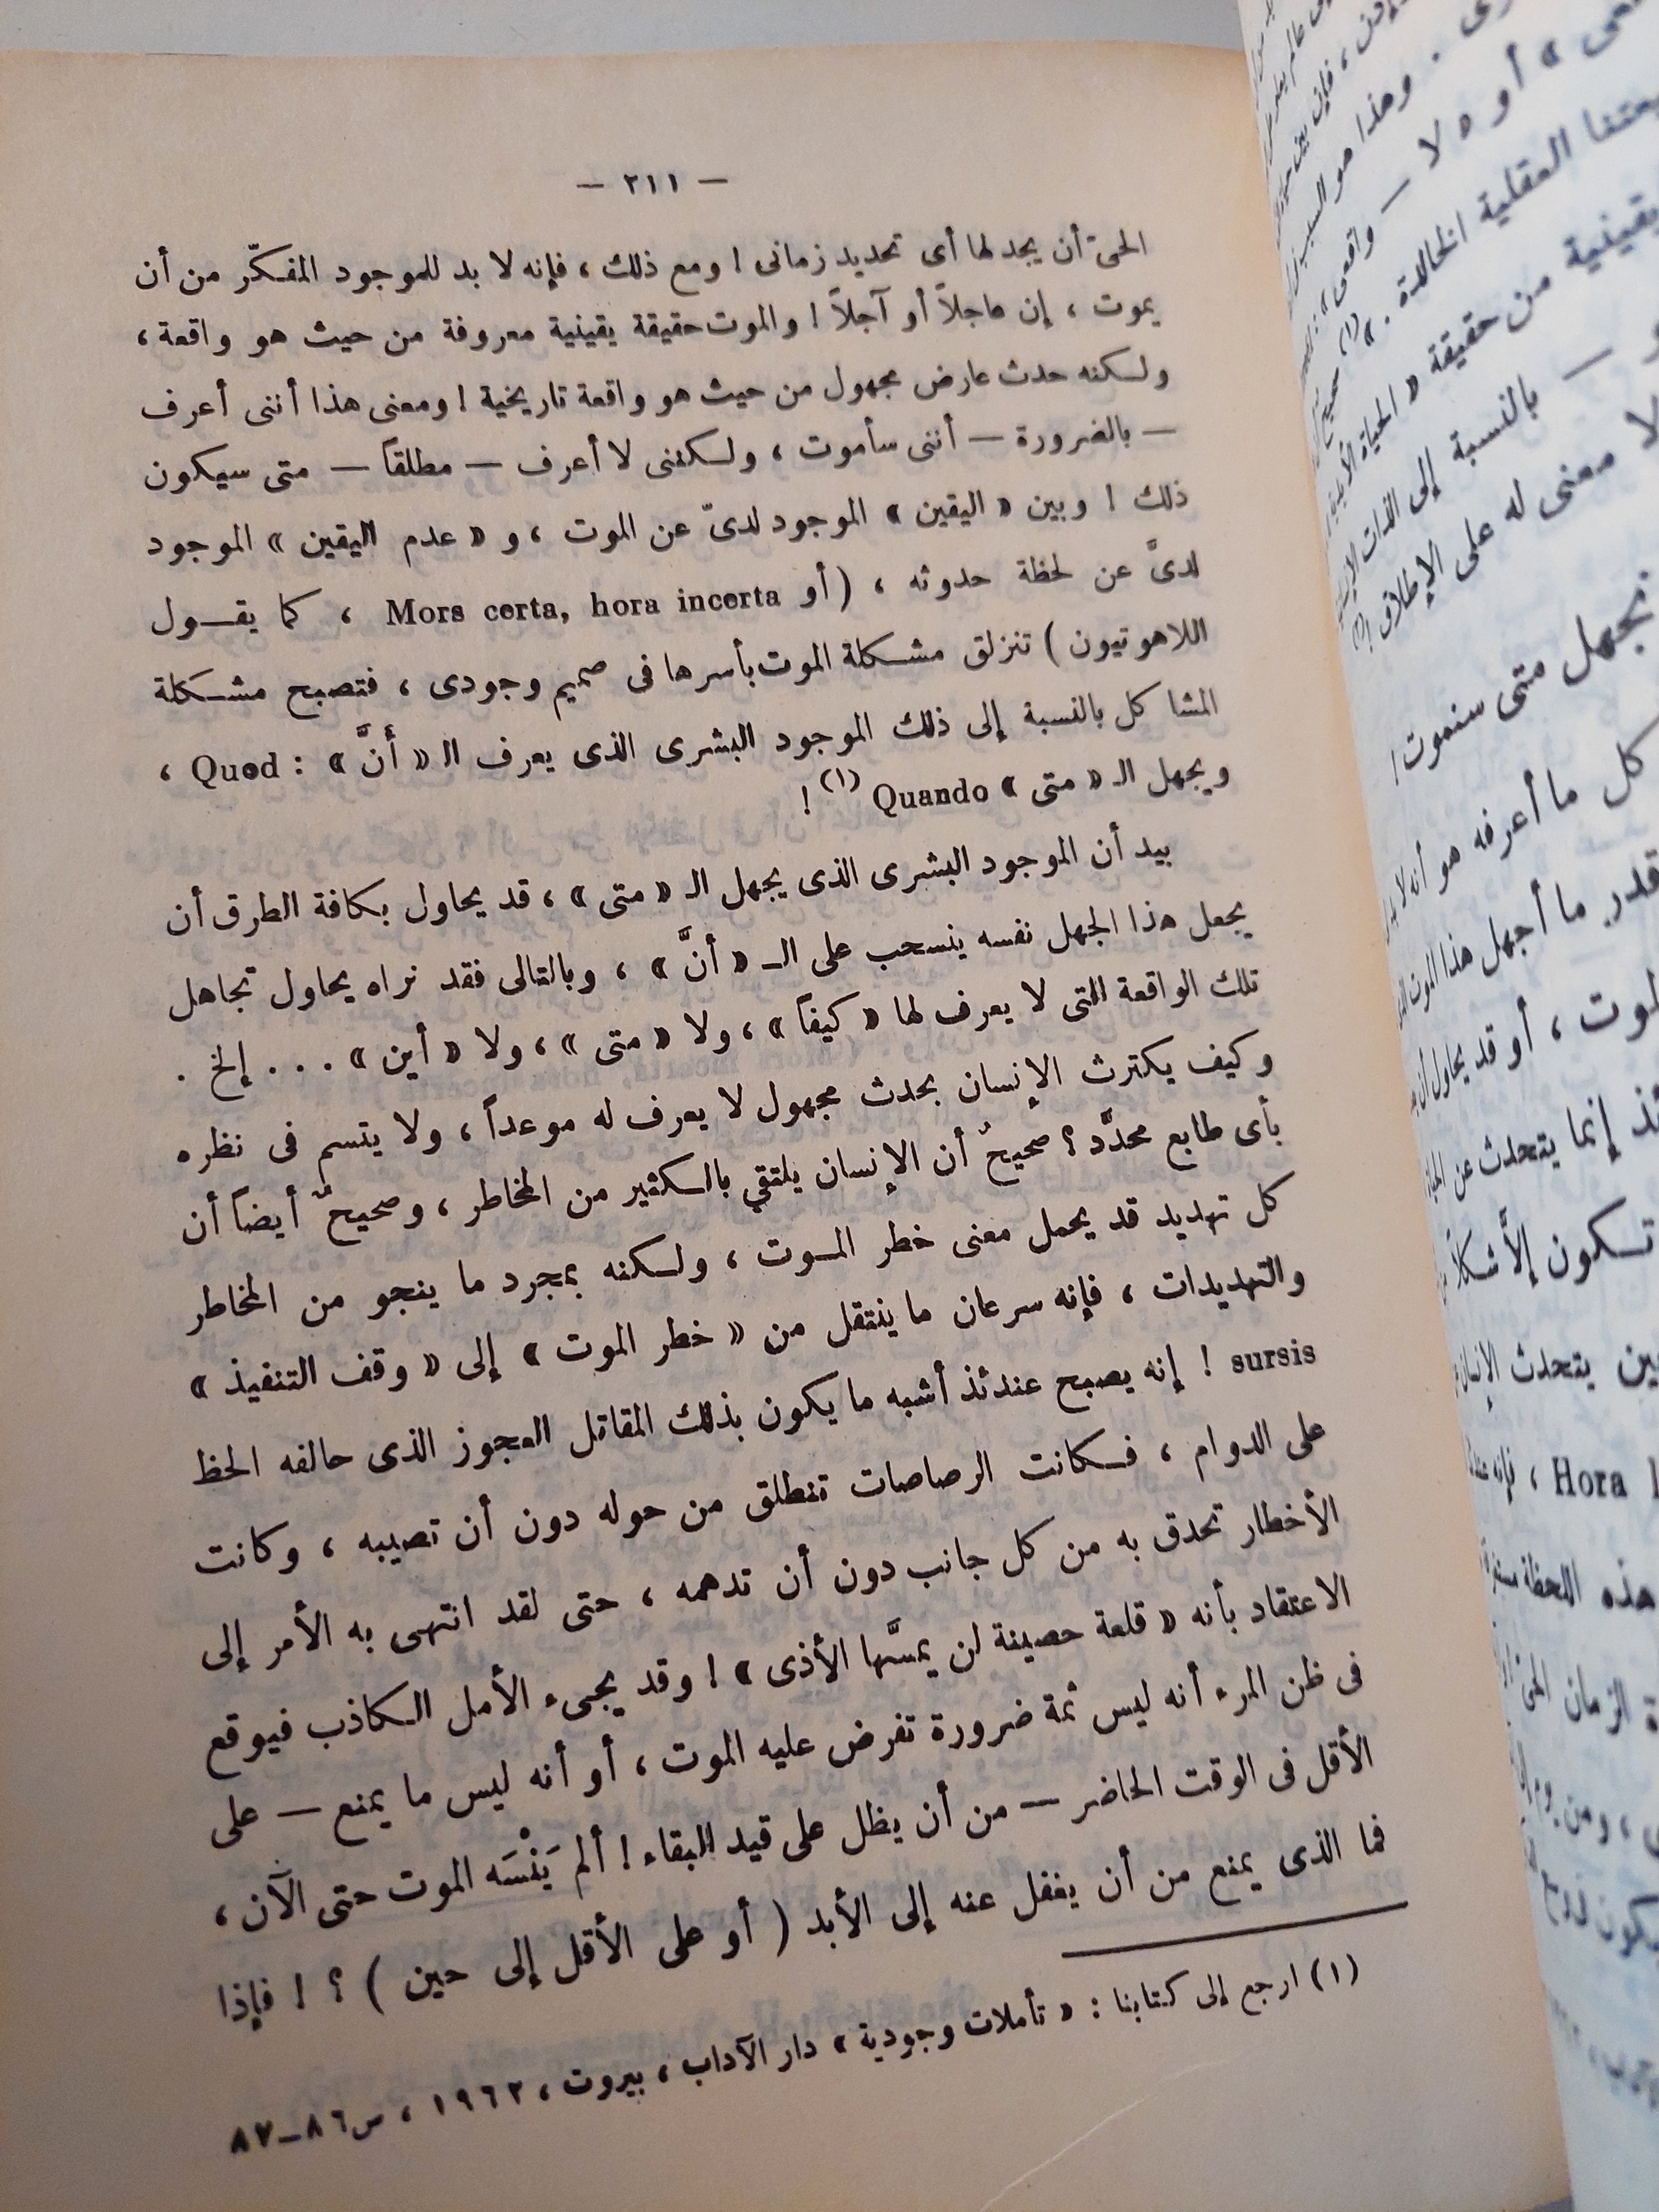 — ٢١١ —
الحىّ أن يجد لها أى تحديد زمانى ! ومع ذلك ، فإنه لا بد للموجود المفكّر من أن
يموت ، إن عاجلاً أو آجلاً ! والموت حقيقة يقينية معروفة من حيث هو واقعة ،
ولكنه حدث عارض مجهول من حيث هو واقعة تاريخية ! ومعنى هذا أننى أعرف
— بالضرورة — أننى سأموت ، ولكننى لا أعرف — مطلقاً — متى سيكون
ذلك ! وبين « اليقين » الموجود لدىّ عن الموت ، و « عدم اليقين » الموجود
لدىَّ عن لحظة حدوثه ، ( أو Mors certa, hora incerta ، كما يقول
اللاهوتيون ) تنزلق مشكلة الموت بأسرها فى صميم وجودى ، فتصبح مشكلة
المشاكل بالنسبة إلى ذلك الموجود البشرى الذى يعرف الـ « أنَّ » : Quod ،
ويجهل الـ « متى » Quando (١) !
بيد أن الموجود البشرى الذى يجهل الـ « متى » ، قد يحاول بكافة الطرق أن
يجعل هذا الجهل نفسه ينسحب على الـ « أنَّ » ، وبالتالى فقد نراه يحاول تجاهل
تلك الواقعة التى لا يعرف لها « كيفاً » ، ولا « متى » ، ولا « أين » . . . إلخ .
وكيف يكترث الإنسان بحدث مجهول لا يعرف له موعداً ، ولا يتسم فى نظره
بأى طابع محدَّد ؟ صحيحٌ أن الإنسان يلتقي بالكثير من المخاطر ، وصحيحٌ أيضاً أن
كل تهديد قد يحمل معنى خطر الموت ، ولكنه بمجرد ما ينجو من المخاطر
والتهديدات ، فإنه سرعان ما ينتقل من « خطر الموت » إلى « وقف التنفيذ »
sursis ! إنه يصبح عندئذ أشبه ما يكون بذلك المقاتل العجوز الذى حالفه الحظ
على الدوام ، فكانت الرصاصات تنطلق من حوله دون أن تصيبه ، وكانت
الأخطار تحدق به من كل جانب دون أن تدهمه ، حتى لقد انتهى به الأمر إلى
الاعتقاد بأنه « قلعة حصينة لن يمسَّها الأذى » ! وقد يجىء الأمل الكاذب فيوقع
فى ظن المرء أنه ليس ثمة ضرورة تفرض عليه الموت ، أو أنه ليس ما يمنع — على
الأقل فى الوقت الحاضر — من أن يظل على قيد البقاء ! ألم يَنْسَه الموت حتى الآن ،
فما الذى يمنع من أن يغفل عنه إلى الأبد ( أو على الأقل إلى حين ) ؟ ! فإذا
(١) ارجع إلى كتابنا : « تأملات وجودية » دار الآداب ، بيروت ، ١٩٦٢ ، س ٨٦–٨٧
عمى » أو « لا — واقعى »
العقلية الخالدة . » (١)
يقينية من حقيقة « الحياة
— بالنسبة إلى الذات
لا معنى له على الإطلاق
نجهل متى سنموت !
كل ما أعرفه هو أنه لا بد
قدر ما أجهل هذا الموت
لموت ، أو قد يحاول أن
إنما يتحدث عن
تكون إلاَّ شكلاً
يتحدث الإنسان
Hora ، فإنه
هذه اللحظة
الزمان